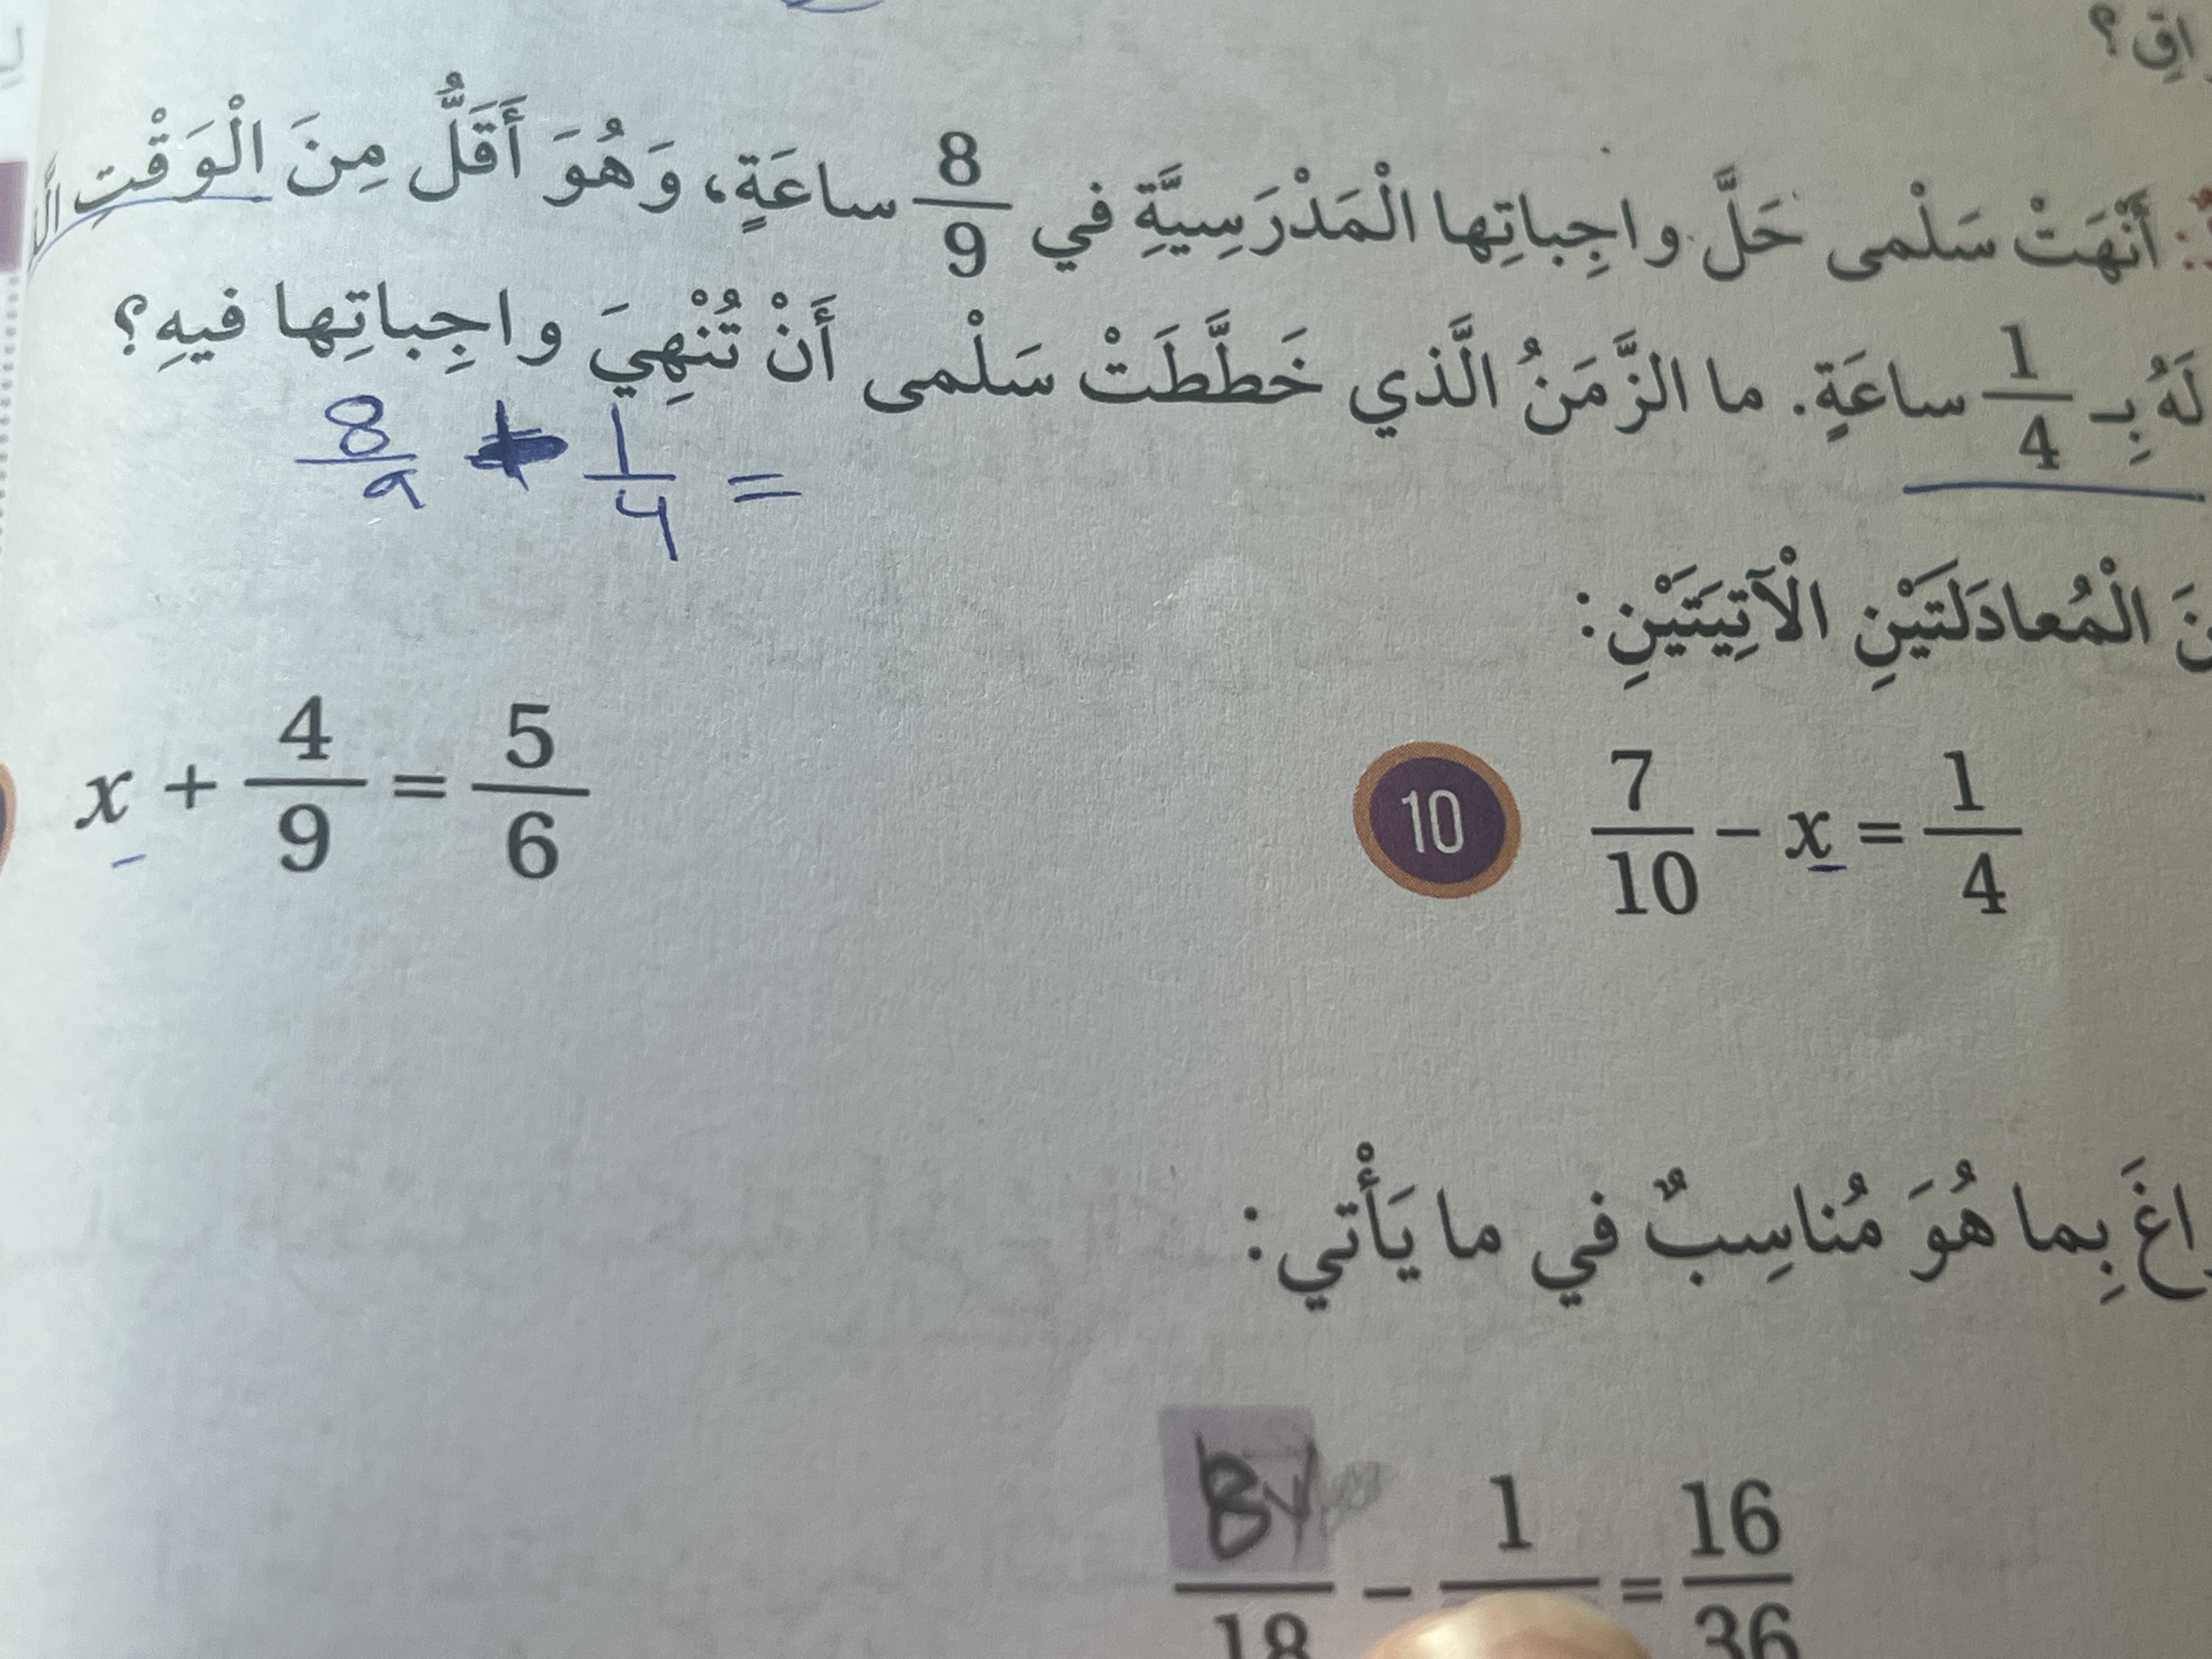 أَنْهَتْ سَلْمى حَلَّ واجِباتِها الْمَدْرَسِيَّةِ في 8/9 ساعَةٍ، وَهُوَ أَقَلُّ مِنَ الْوَقْتِ
لَهُ بِـ 1/4 ساعَةٍ. ما الزَّمَنُ الَّذي خَطَّطَتْ سَلْمى أَنْ تُنْهِيَ واجِباتِها فيهِ؟
8/9 + 1/4 =
الْمُعادَلَتَيْنِ الْآتِيَتَيْنِ:
x + 4/9 = 5/6
10 7/10 - x = 1/4
بِما هُوَ مُناسِبٌ في ما يَأْتي:
/18 - 1/ = 16/36